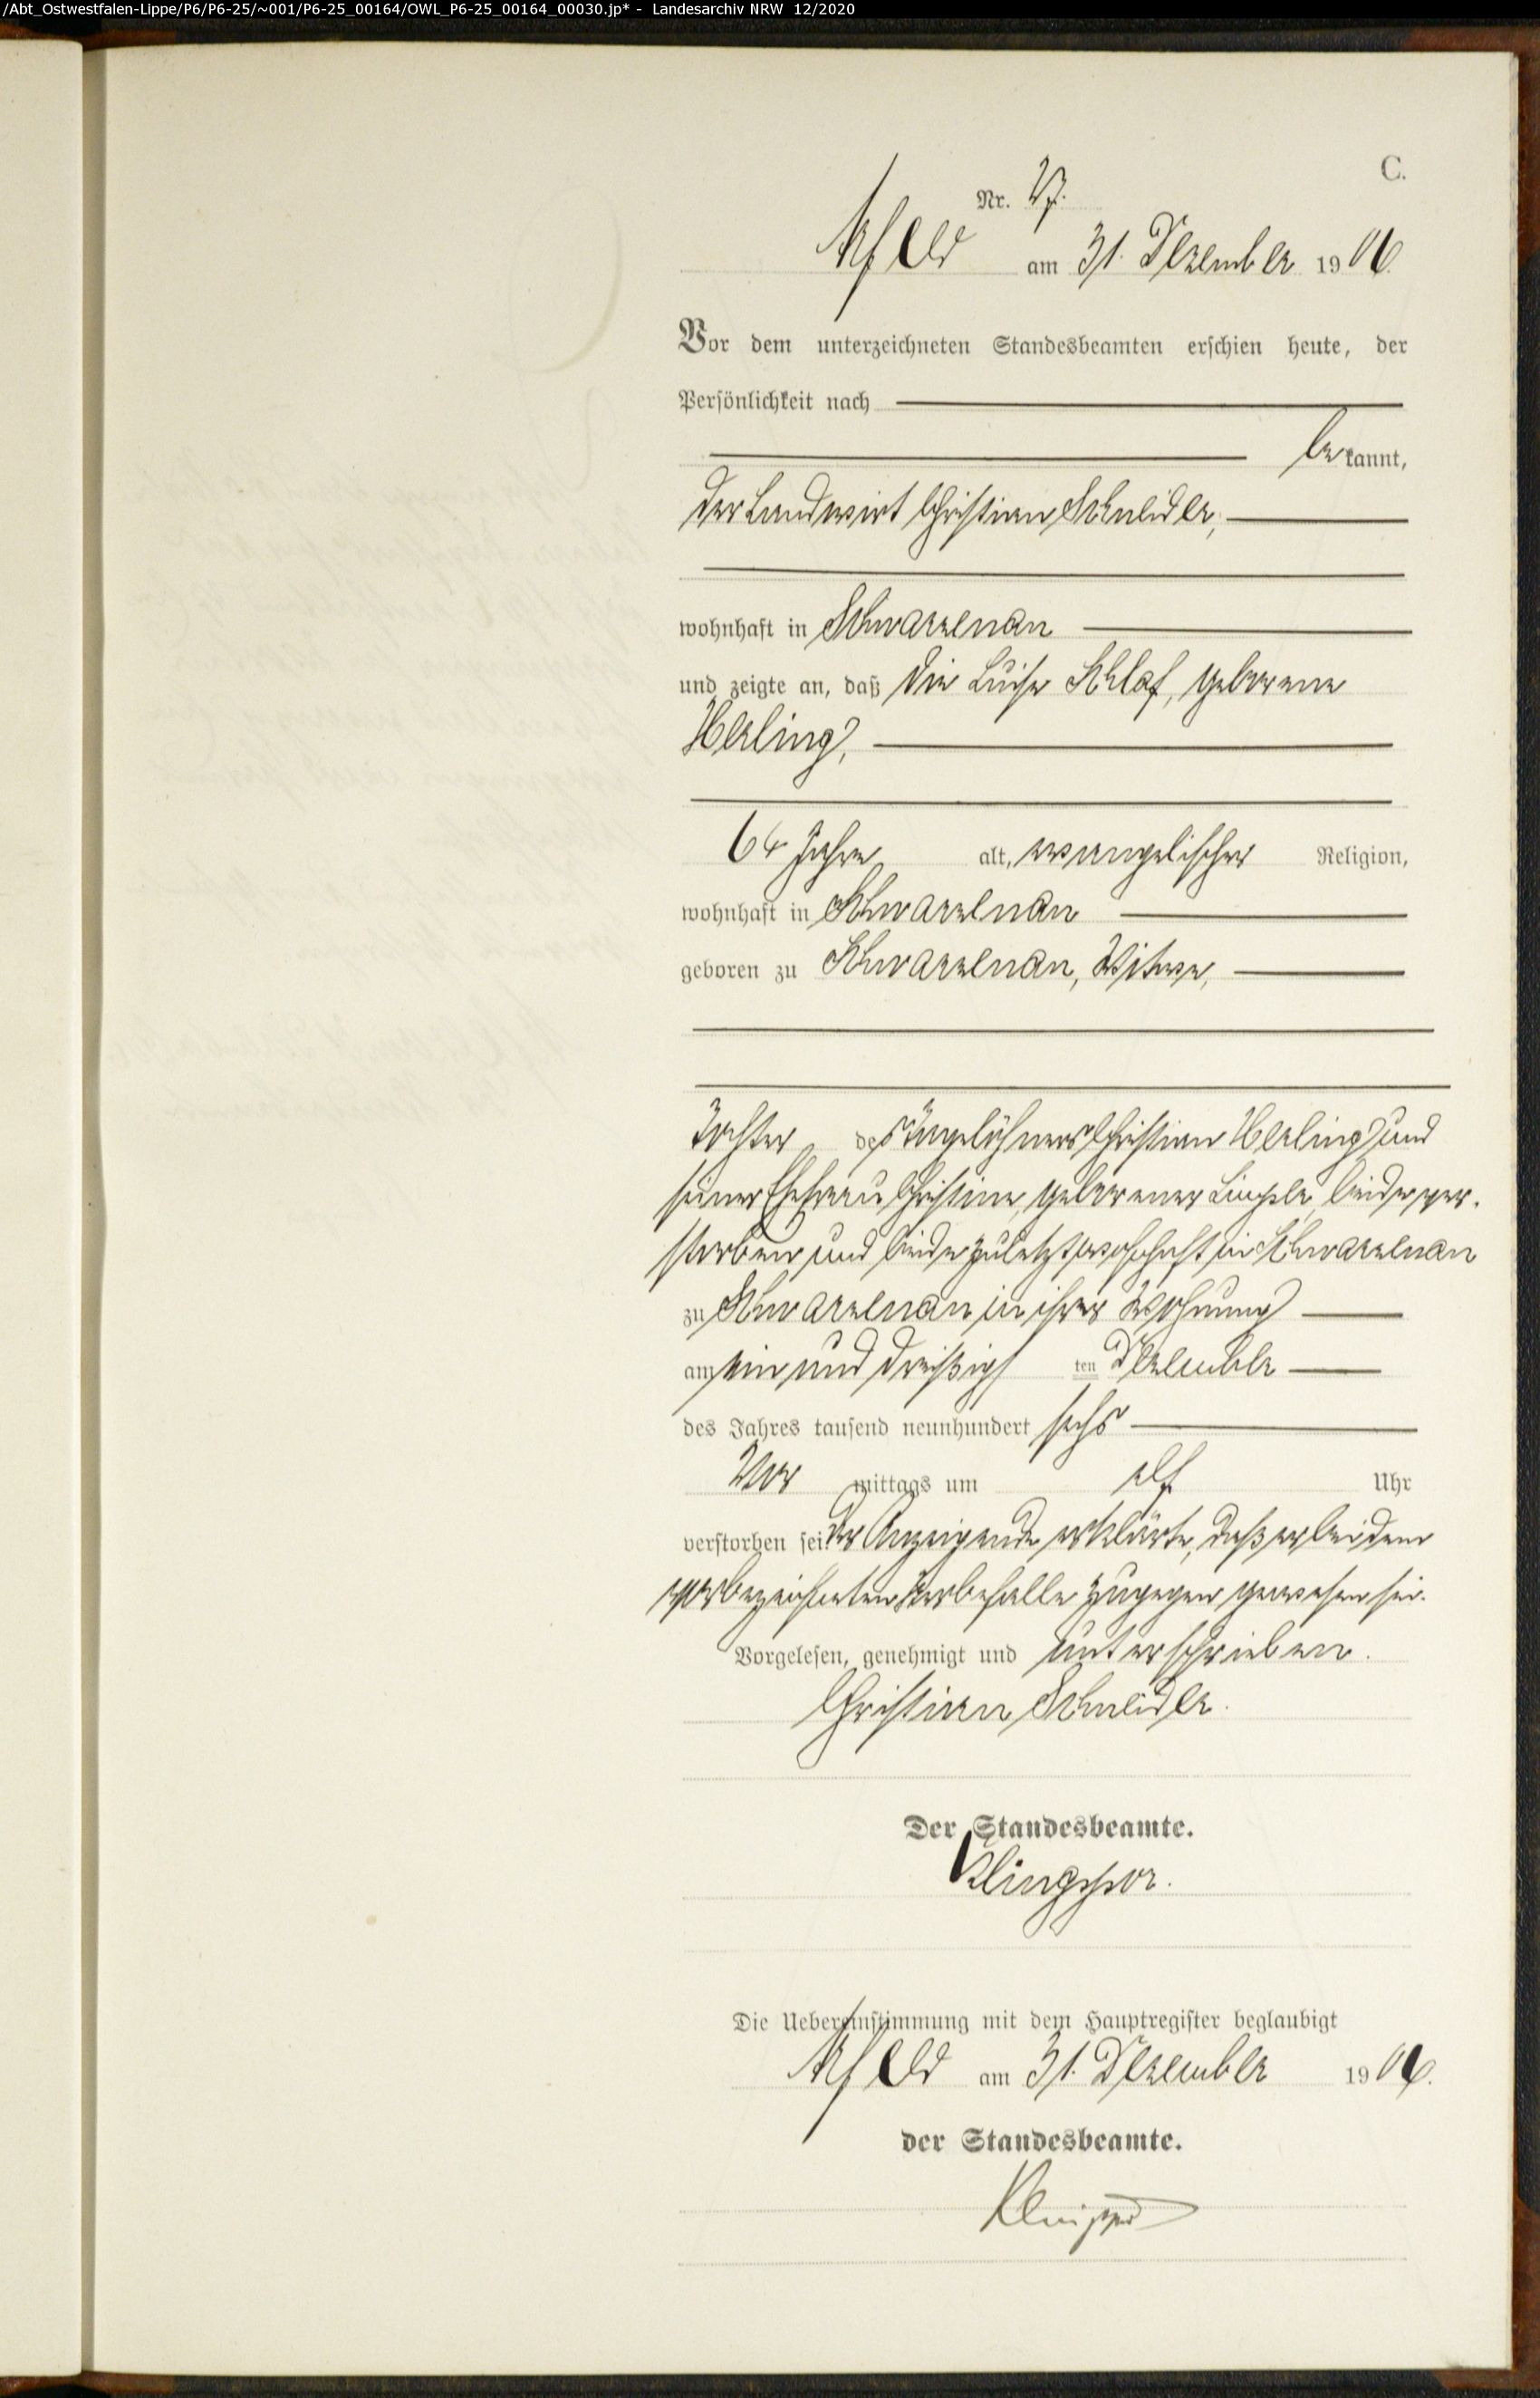 /Abt_Ostwestfalen-Lippe/P6/P6-25/~001/P6-25_00164/OWL_P6-25_00164_00030.jp* - Landesarchiv NRW 12/2020
C.
Nr. 27.
Arfeld am 31. Dezember 1906.
Vor dem unterzeichneten Standesbeamten erschien heute, der
Persönlichkeit nach
bekannt,
der Landwirt Christian Schneider,
wohnhaft in Schwarzenau
und zeigte an, daß die Luise Schlaf, geborene
Herling,
64 Jahre alt, evangelischer Religion,
wohnhaft in Schwarzenau
geboren zu Schwarzenau, Witwe,
Tochter des Tagelöhners Christian Herling und
seiner Ehefrau Christine, geborener beide ver-
storben und beide zuletzt wohnhaft in Schwarzenau
zu Schwarzenau in ihrer Wohnung
am ein und dreißigsten Dezember
des Jahres tausend neunhundert sechs
Vor mittags um elf Uhr
verstorben sei. Der Anzeigende erklärte, daß er bei dem
vorbezeichneten Sterbefalle zugegen gewesen sei.
Vorgelesen, genehmigt und unterschrieben.
Christian Schneider.
Der Standesbeamte.
Klingspor.
Die Uebereinstimmung mit dem Hauptregister beglaubigt
Arfeld am 31. Dezember 1906.
der Standesbeamte.
Klingspor